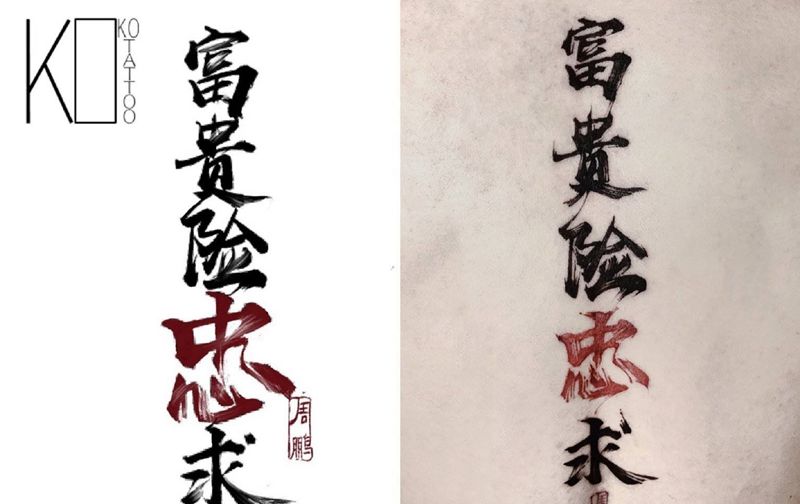 KO
KO TATTOO
富貴险忠求
周鹏
富貴险忠求
周